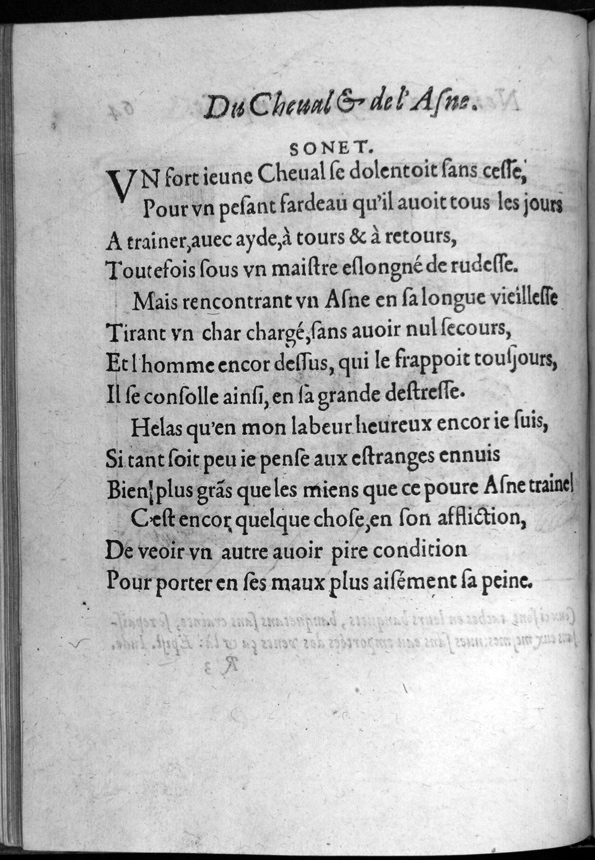 Du Cheual & de l'Aſne.
SONET.
VN fort ieune Cheual ſe dolentoit ſans ceſſe,
Pour vn peſant fardeau qu'il auoit tous les jours
A trainer, auec ayde, à tours & à retours,
Toutefois ſous vn maiſtre eſlongné de rudeſſe.
Mais rencontrant vn Aſne en ſa longue vieilleſſe
Tirant vn char chargé, ſans auoir nul ſecours,
Et l'homme encor deſſus, qui le frappoit touſjours,
Il ſe conſolle ainſi, en ſa grande deſtreſſe.
Helas qu'en mon labeur heureux encor ie ſuis,
Si tant ſoit peu ie penſe aux eſtranges ennuis
Bien plus grãs que les miens que ce poure Aſne traine!
C'eſt encor quelque choſe, en ſon affliction,
De veoir vn autre auoir pire condition
Pour porter en ſes maux plus aiſément ſa peine.